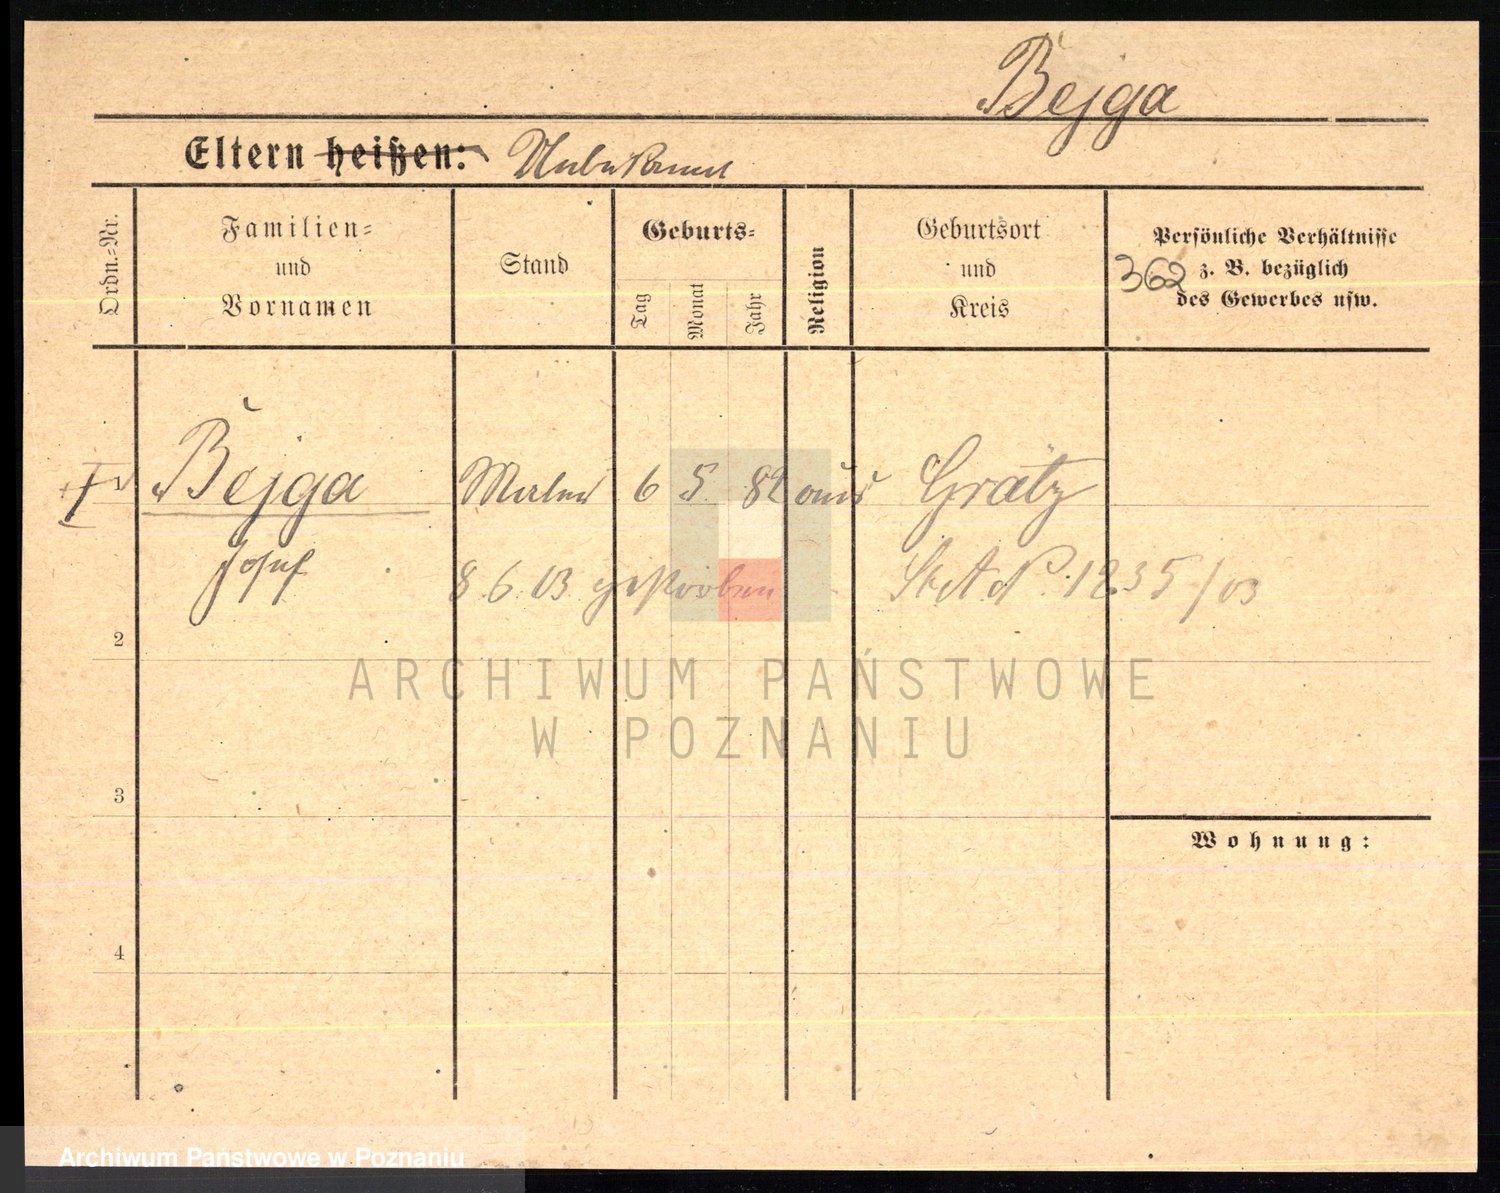 Bejga
Eltern heißen: Unbekannt
Ordn.-Nr.
Familien- und Vornamen
Stand
Geburts-
Tag
Monat
Jahr
Religion
Geburtsort und Kreis
Persönliche Verhältnisse
362 z. B. bezüglich
des Gewerbes usw.
Bejga Maler 6 5. 82 aus Grätz
Josef
8 6. 03 gestorben St. A. N. 1235/03
2
ARCHIWUM PAŃSTWOWE
W POZNANIU
3
Wohnung:
4
Archiwum Państwowe w Poznaniu